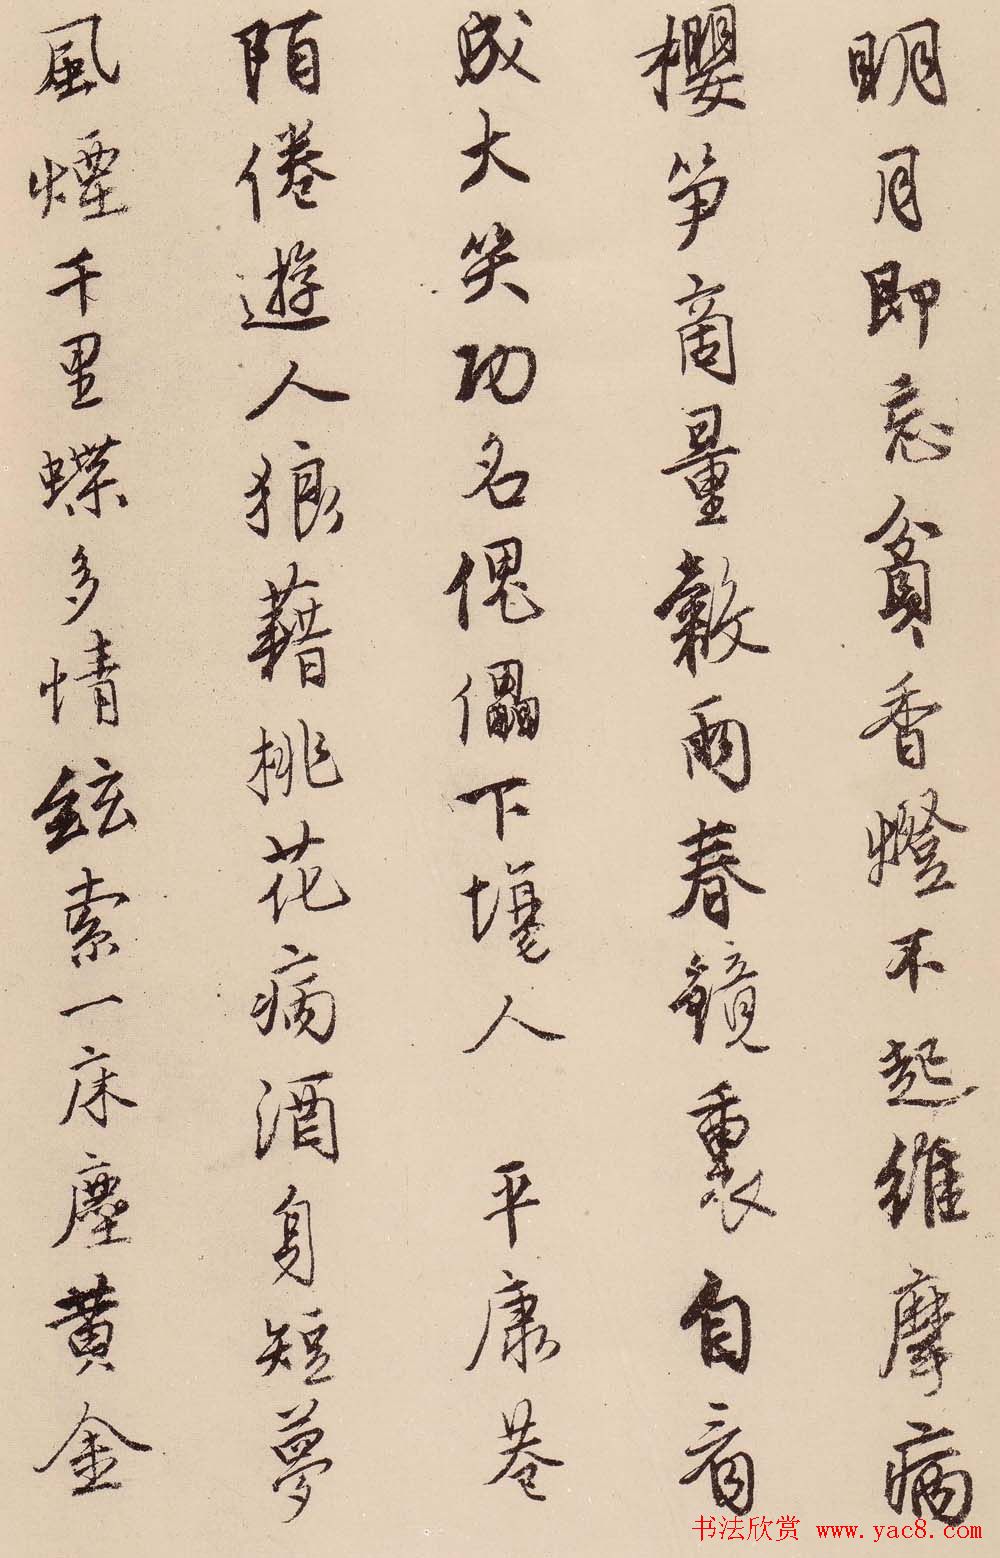 明月即忘貧香燈不起維摩病
櫻笋商量穀雨春鏡裏自看
成大笑功名傀儡下場人 平康巷
陌倦遊人狼藉桃花病酒身短夢
風煙千里蝶多情絃索一床塵黃金
书法欣赏 www.yac8.com